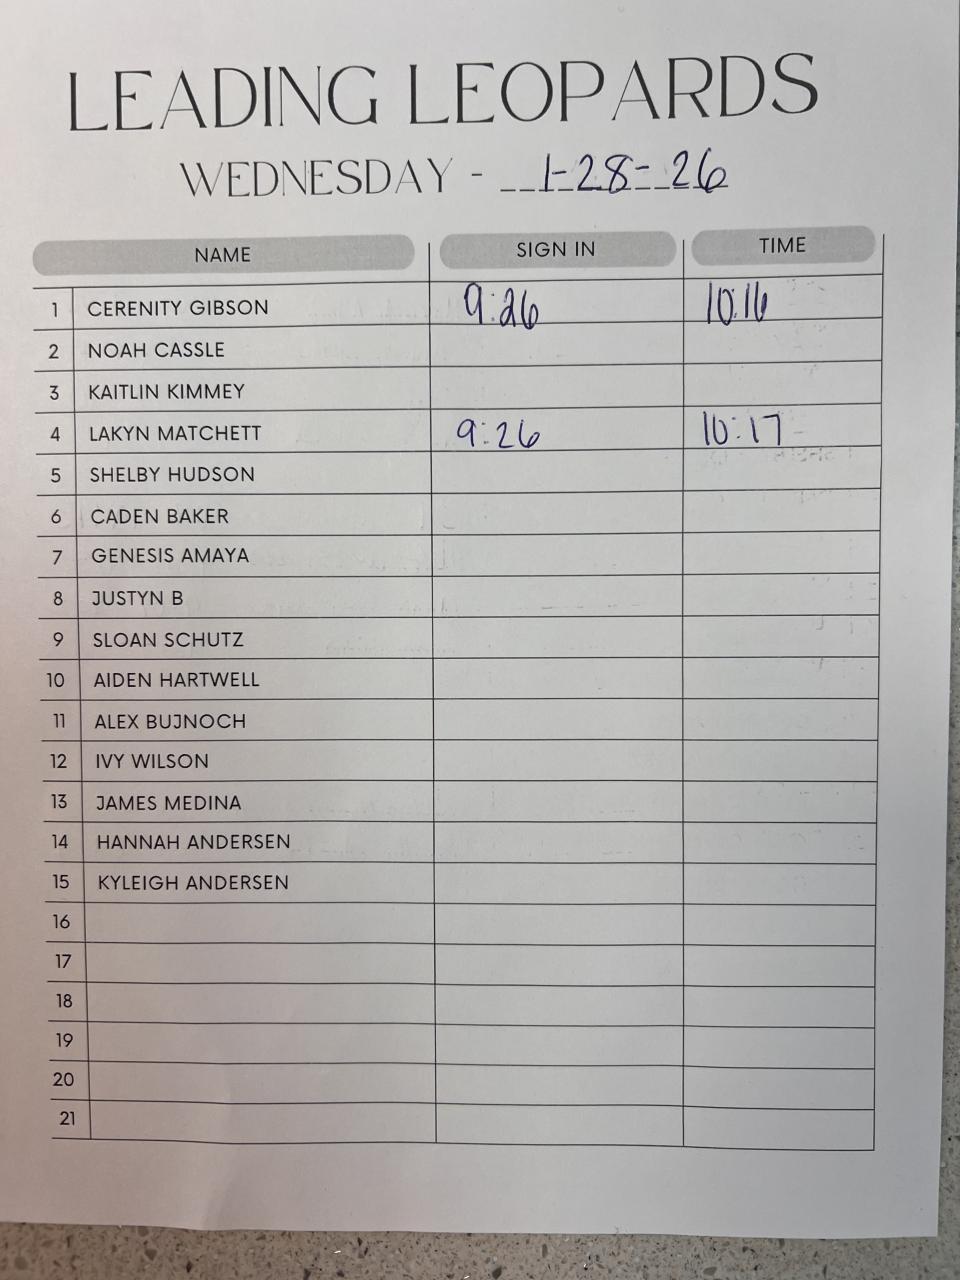 LEADING LEOPARDS
WEDNESDAY - 1-28-26
NAME SIGN IN TIME
1 CERENITY GIBSON 9:26 10:16
2 NOAH CASSLE
3 KAITLIN KIMMEY
4 LAKYN MATCHETT 9:26 10:17
5 SHELBY HUDSON
6 CADEN BAKER
7 GENESIS AMAYA
8 JUSTYN B
9 SLOAN SCHUTZ
10 AIDEN HARTWELL
11 ALEX BUJNOCH
12 IVY WILSON
13 JAMES MEDINA
14 HANNAH ANDERSEN
15 KYLEIGH ANDERSEN
16
17
18
19
20
21